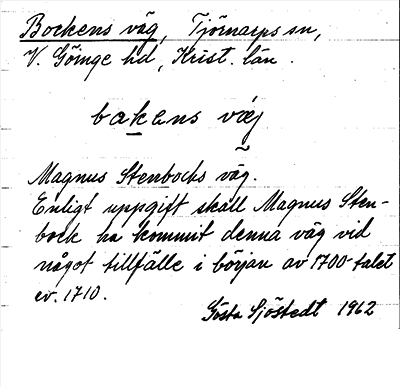 Bockens väg, Tjörnarps sn,
V. Göinge hd, Krist. län.
bakens väg
Magnus Stenbocks väg.
Enligt uppgift skall Magnus Sten-
bock ha kommit denna väg vid
något tillfälle i början av 1700-talet
ev. 1710.
Gösta Sjöstedt 1962